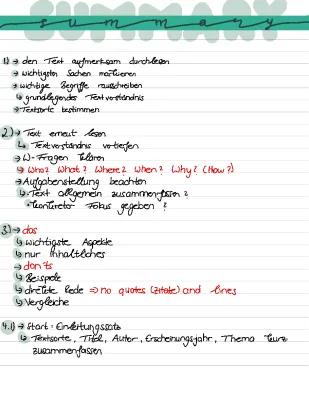 SUMMARY
summary
1) → den Text aufmerksam durchlesen
→ wichtigsten Sachen markieren
→ wichtige Begriffe rausschreiben
↳ grundlegendes Textverständnis
→ Textsorte bestimmen
2) → Text erneut lesen
↳ Textverständnis vertiefen
→ W-Fragen klären
↳ Who? What? Where? When? Why? (How?)
→ Aufgabenstellung beachten
↳ Text allgemein zusammenfassen?
• konkreter Fokus gegeben?
3) → dos
↳ wichtigste Aspekte
↳ nur Inhaltliches
→ don'ts
↳ Beispiele
↳ direkte Rede ⇒ no quotes (Zitate) and lines
↳ Vergleiche
4.1) → Start: Einleitungssatz
↳ Textsorte, Titel, Autor, Erscheinungsjahr, Thema kurz
zusammenfassen